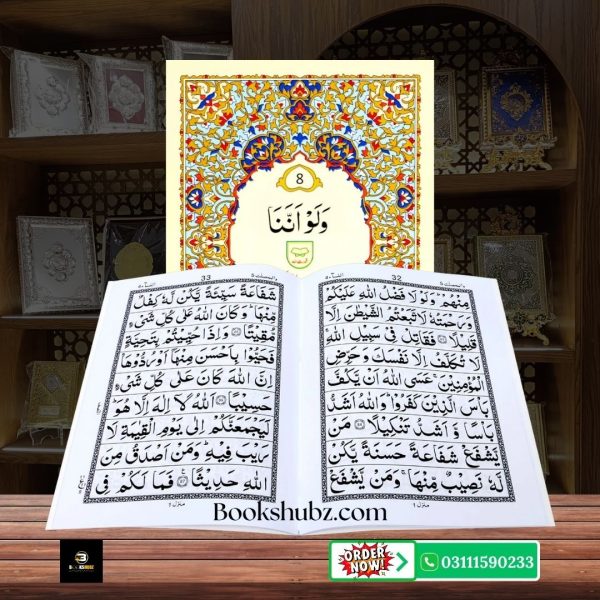 8
وَلَوْ اَنَّنَا
32
مِنْهُمْ ؕ وَلَوْ لَا فَضْلُ اللّٰهِ عَلَيْكُمْ
وَ رَحْمَتُهٗ لَاتَّبَعْتُمُ الشَّيْطٰنَ اِلَّا
قَلِيْلًا ۝ فَقَاتِلْ فِيْ سَبِيْلِ اللّٰهِ ۚ
لَا تُكَلَّفُ اِلَّا نَفْسَكَ وَحَرِّضِ
الْمُؤْمِنِيْنَ ۚ عَسَى اللّٰهُ اَنْ يَّكُفَّ
بَاْسَ الَّذِيْنَ كَفَرُوْا ؕ وَاللّٰهُ اَشَدُّ
بَاْسًا وَّ اَشَدُّ تَنْكِيْلًا ۝ مَنْ
يَّشْفَعْ شَفَاعَةً حَسَنَةً يَّكُنْ
لَّهٗ نَصِيْبٌ مِّنْهَا ۚ وَمَنْ يَّشْفَعْ
منزل ١
33
شَفَاعَةً سَيِّئَةً يَّكُنْ لَّهٗ كِفْلٌ
مِّنْهَا ؕ وَ كَانَ اللّٰهُ عَلٰى كُلِّ شَيْءٍ
مُّقِيْتًا ۝ وَ اِذَا حُيِّيْتُمْ بِتَحِيَّةٍ
فَحَيُّوْا بِاَحْسَنَ مِنْهَاۤ اَوْ رُدُّوْهَا ؕ
اِنَّ اللّٰهَ كَانَ عَلٰى كُلِّ شَيْءٍ
حَسِيْبًا ۝ اَللّٰهُ لَاۤ اِلٰهَ اِلَّا هُوَ ؕ
لَيَجْمَعَنَّكُمْ اِلٰى يَوْمِ الْقِيٰمَةِ لَا
رَيْبَ فِيْهِ ؕ وَمَنْ اَصْدَقُ مِنَ
اللّٰهِ حَدِيْثًا ۝ فَمَا لَكُمْ فِي
منزل ١
Bookshubz.com
BOOKSHUBZ
ORDER NOW!
03111590233